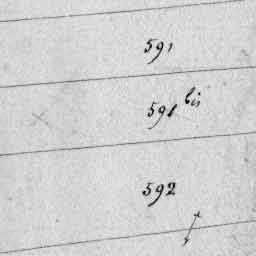 591
591 bis
592